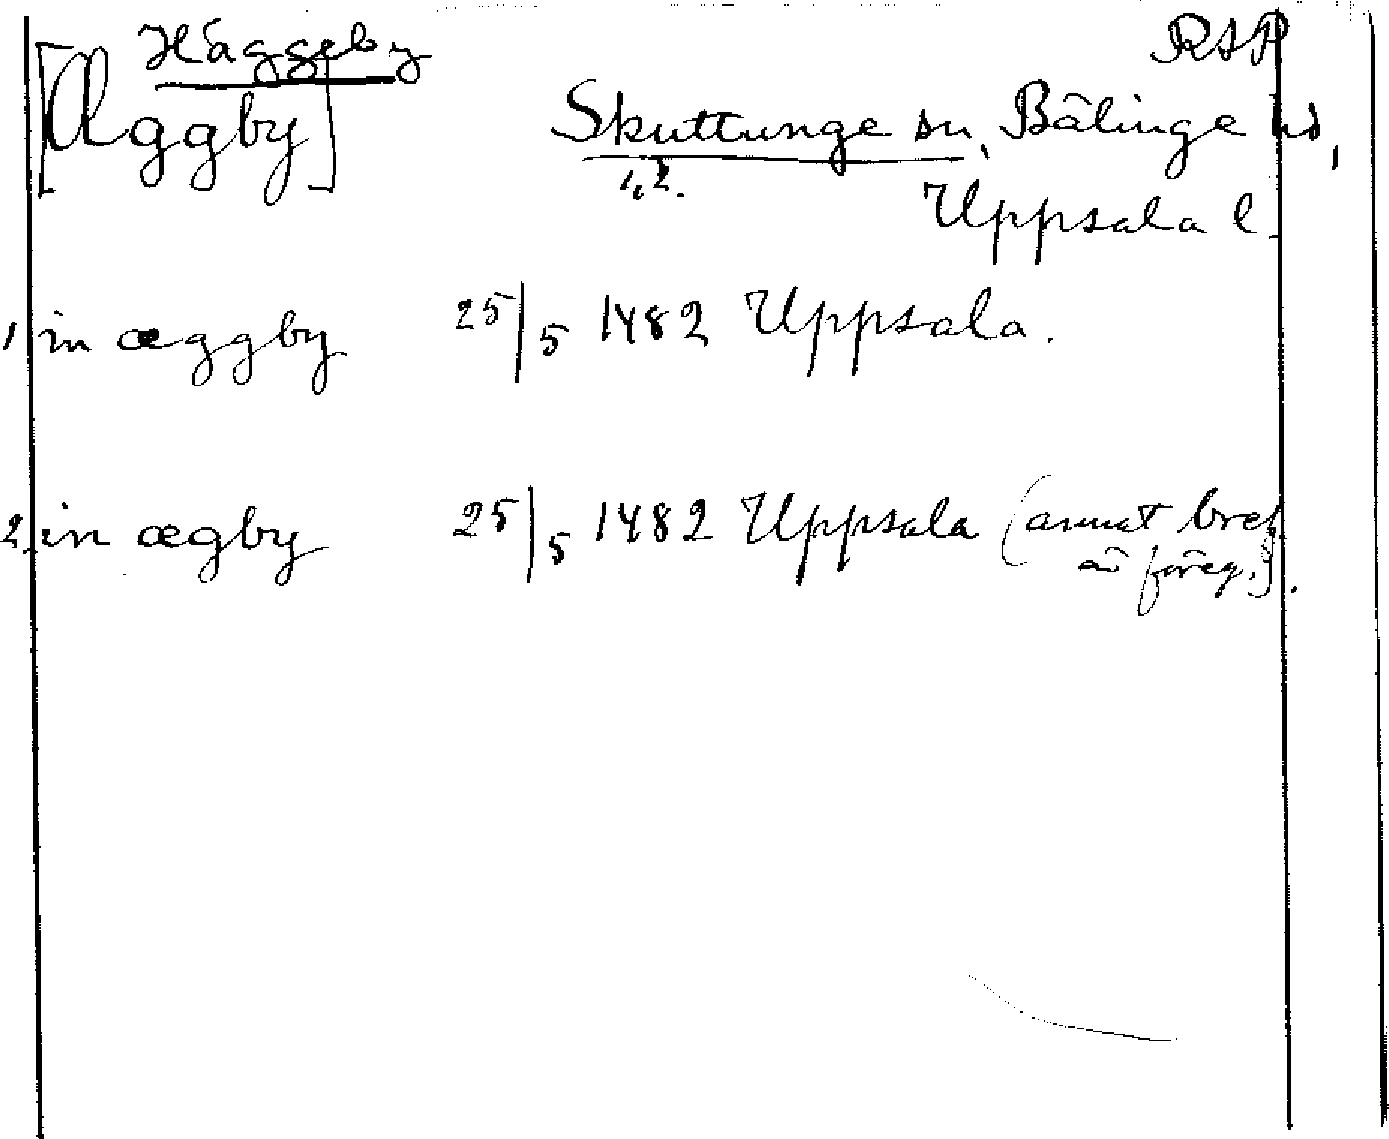 Häggeby RAP
[Æggby] Skuttunge sn, Bälinge hd,
1,2.
Uppsala l.
1, in æggby 25/5 1482 Uppsala.
2, in ægby 25/5 1482 Uppsala (annat bref
än föreg.).